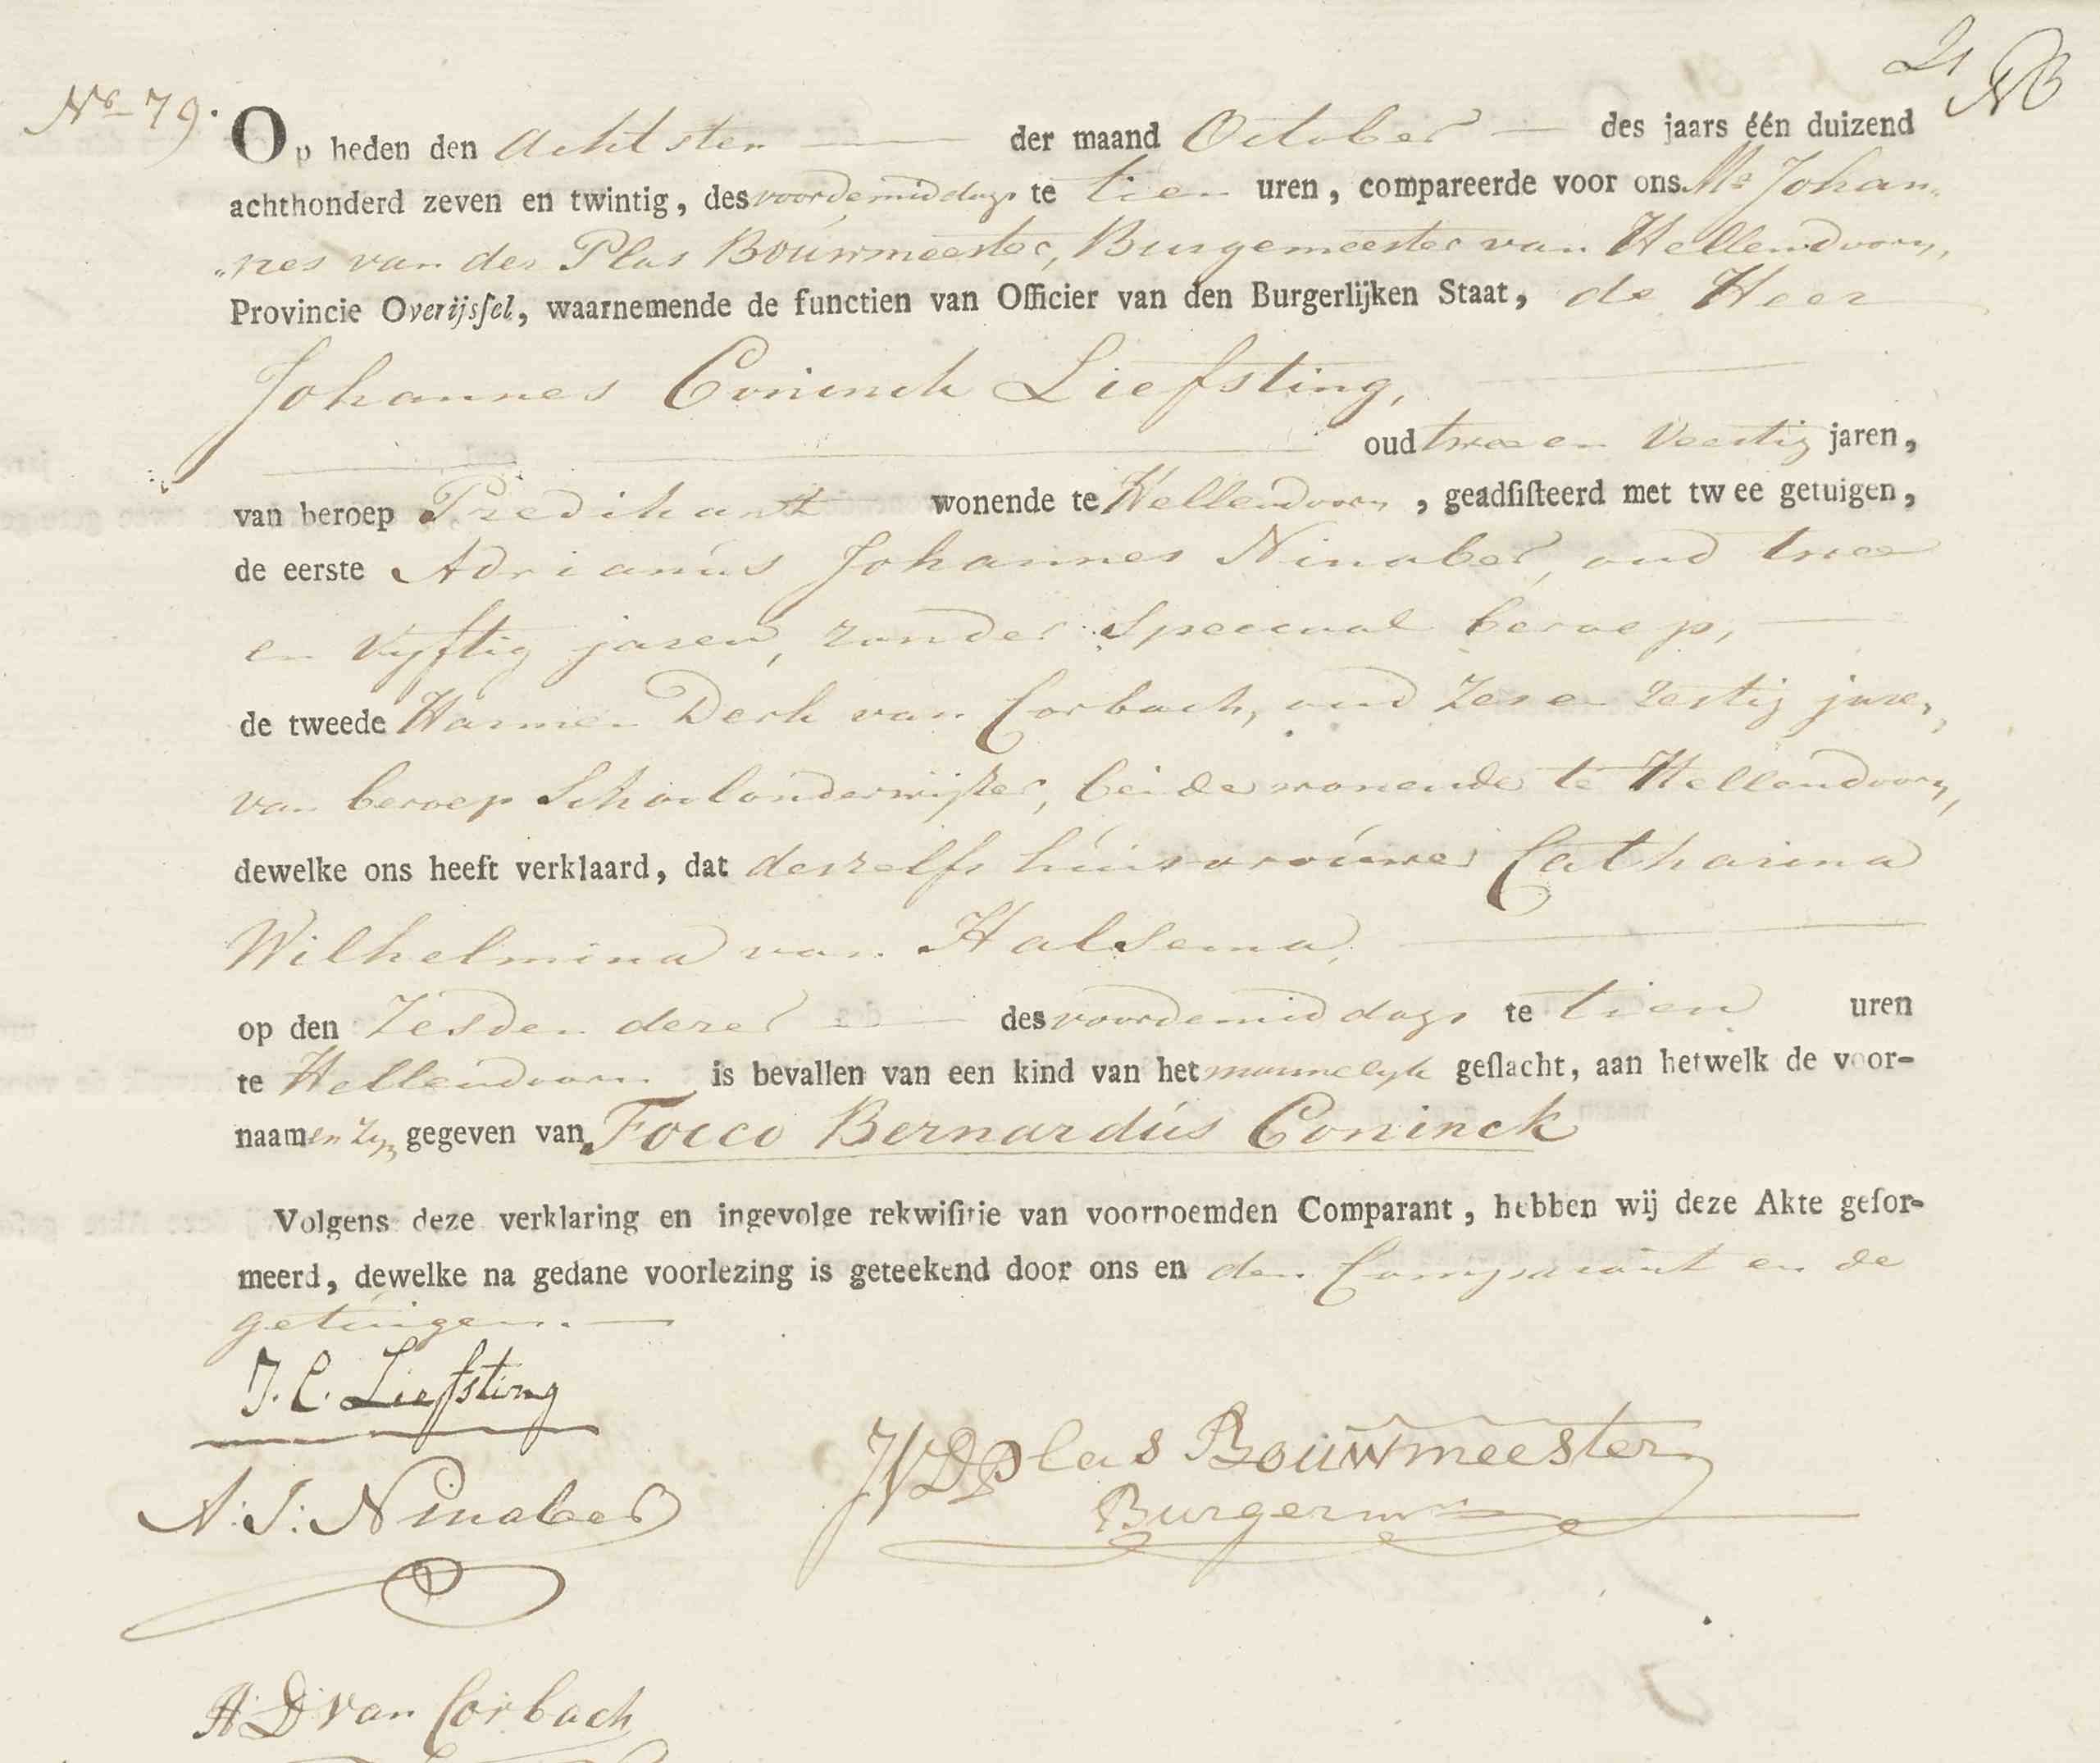 21
No 79.
Op heden den Achtsten der maand October des jaars één duizend
achthonderd zeven en twintig, des voordemiddags te tien uren, compareerde voor ons Mr Johan„
„nes van der Plas Bouwmeester, Burgemeester van Hellendoorn,
Provincie Overijsſel, waarnemende de functien van Officier van den Burgerlijken Staat, de Heer
Johannes Coninck Liefsting,
oud twee en Veertig jaren,
van beroep Predikant wonende te Hellendoorn, geadſiſteerd met twee getuigen,
de eerste Adrianus Johannes Ninaber, oud twee
en Vyftig jaren, zonder speciaal beroep,
de tweede Harmen Derk van Corbach, oud Zes en Zestig jaren,
van beroep Schoolonderwijzer, beide wonende te Hellendoorn,
dewelke ons heeft verklaard, dat deszelfs huisvrouwe Catharina
Wilhelmina van Halsema,
op den Zesden dezer des voordemiddags te tien uren
te Hellendoorn is bevallen van een kind van het mannelyk geſlacht, aan hetwelk de voor-
naamen zyn gegeven van Focco Bernardus Coninck
Volgens deze verklaring en ingevolge rekwiſitie van voornoemden Comparant, hebben wij deze Akte gefor-
meerd, dewelke na gedane voorlezing is geteekend door ons en den Comparant en de
getuigen.
J. C. Liefsting
JVDPlas Bouwmeester
A: J: Ninaber
Burgerm
H D van Corbach